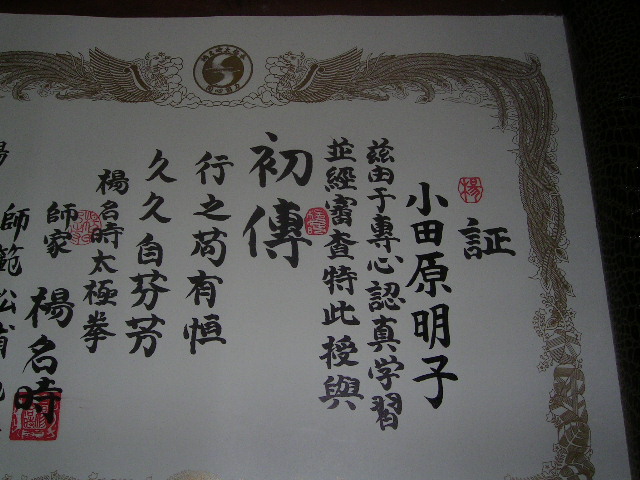 証
小田原明子
茲由于專心認真学習
並経審査特此授與
初傳
行之苟有恒
久久自芬芳
楊名時太極拳
師家 楊名時
師範 松